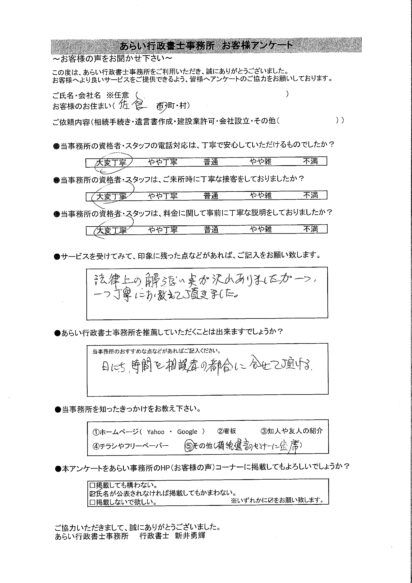 あらい行政書士事務所 お客様アンケート
～お客様の声をお聞かせ下さい～
この度は、あらい行政書士事務所をご利用いただき、誠にありがとうございました。
お客様へより良いサービスをご提供できるよう、皆様へアンケートのご協力をお願いしております。
ご氏名・会社名 ※任意 ( )
お客様のお住まい( 佐倉 市・町・村)
ご依頼内容(相続手続き・遺言書作成・建設業許可・会社設立・その他( ))
●当事務所の資格者・スタッフの電話対応は、丁寧で安心していただけるものでしたか?
大変丁寧 やや丁寧 普通 やや雑 不満
●当事務所の資格者・スタッフは、ご来所時に丁寧な接客をしておりましたか?
大変丁寧 やや丁寧 普通 やや雑 不満
●当事務所の資格者・スタッフは、料金に関して事前に丁寧な説明をしておりましたか?
大変丁寧 やや丁寧 普通 やや雑 不満
●サービスを受けてみて、印象に残った点などがあれば、ご記入をお願い致します。
法律上の解らない点が沢山ありましたが一つ、
一つ丁寧にお教えて頂きました。
●あらい行政書士事務所を推薦していただくことは出来ますでしょうか?
当事務所のおすすめな点などがあればご記入ください。
日にち、時間を相談者の都合に合せて頂ける。
●当事務所を知ったきっかけをお教え下さい。
①ホームページ( Yahoo ・ Google ) ②看板 ③知人や友人の紹介
④チラシやフリーペーパー ⑤その他(相続遺言セミナーに出席)
●本アンケートをあらい事務所のHP(お客様の声)コーナーに掲載してもよろしいでしょうか?
□掲載しても構わない。
☑氏名が公表されなければ掲載してもかまわない。
□掲載しないで欲しい。 ※いずれかに☑をお願い致します。
ご協力いただきまして、誠にありがとうございました。
あらい行政書士事務所 行政書士 新井勇輝